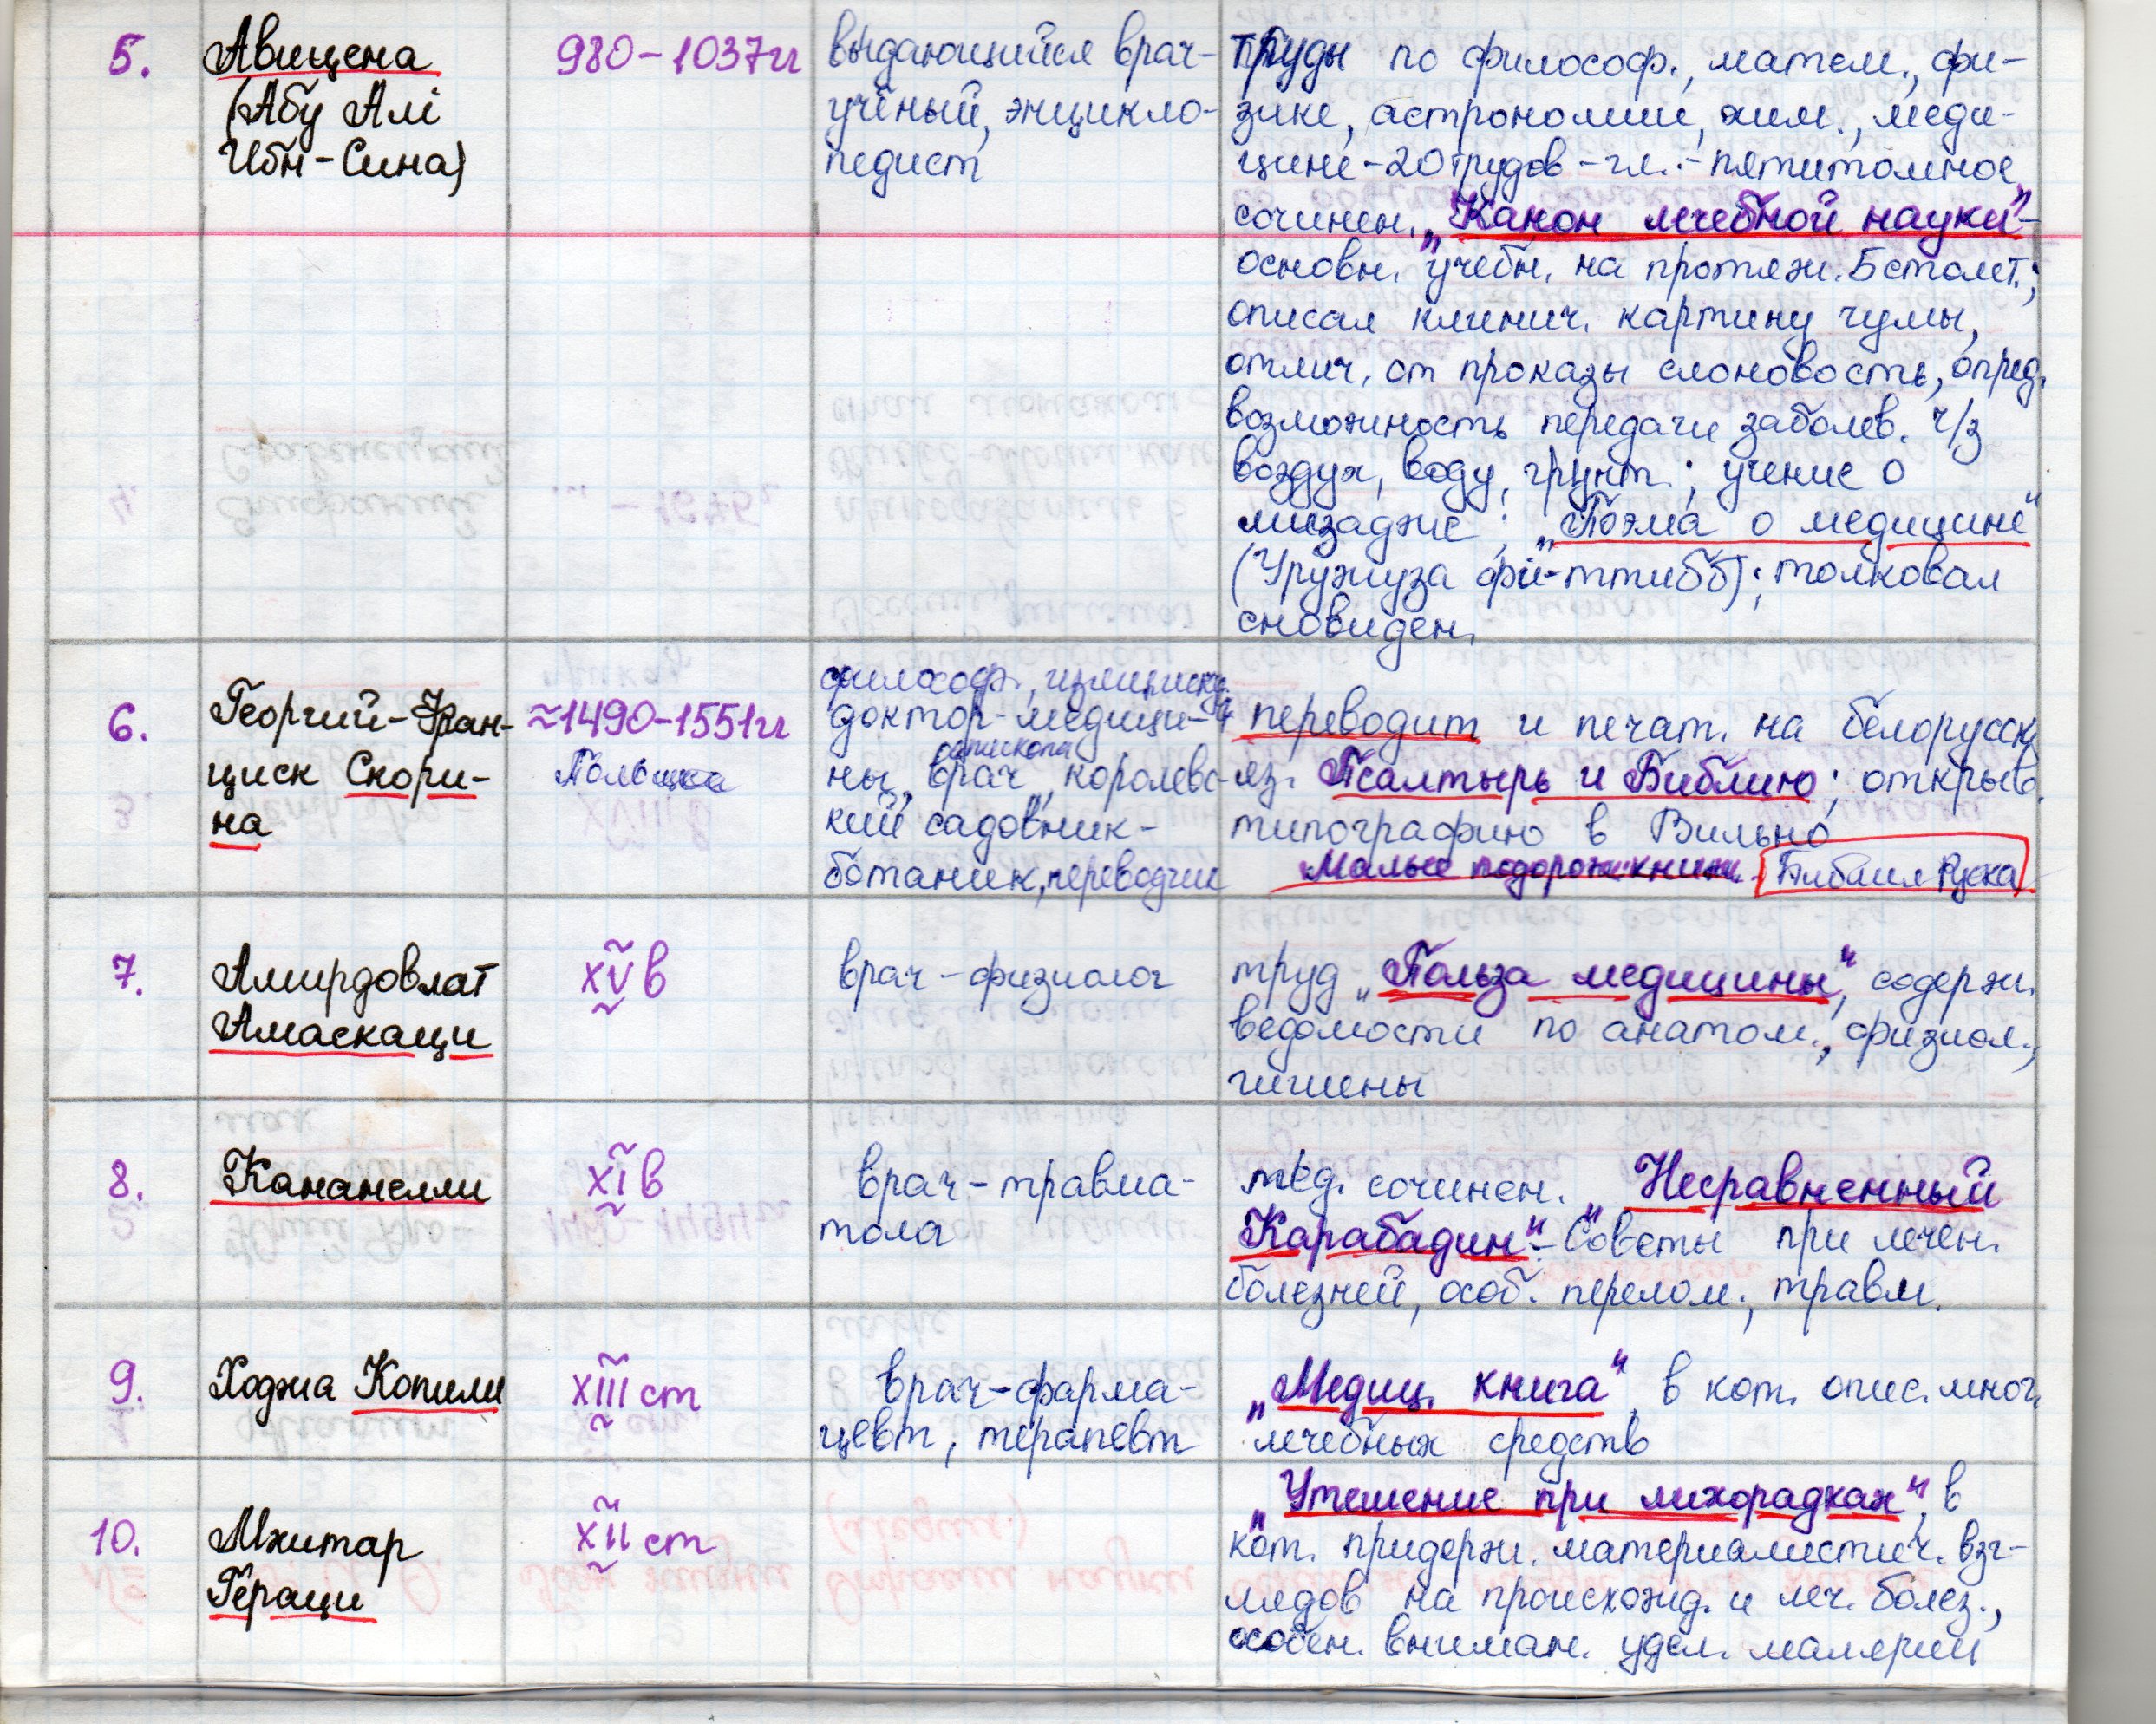 5.
Авицена
(Абу Алі
Ибн-Сина)
980-1037гг
выдающийся врач-
учёный, энцикло-
педист
труды по философ., матем., фи-
зике, астрономии, хим., меди-
цине-20трудов-гл.-пятитомное
сочинен. „Канон лечебной науки"-
основн. учебн. на протяж. 5столет.;
описал клинич. картину чумы,
отлич. от проказы слоновость, опред.
возможность передачи заболев. ч/з
воздух, воду, грунт.; учение о
мизадже; „Поэма о медицине"
(Уружуза фи-ттибб); толковал
сновиден.
6.
Георгий-Фран-
циск Скори-
на
≈1490-1551гг
Польша
философ.,
доктор-медици-
ны, врач епископа, королевс-
кий садовник-
ботаник, переводчик
переводит и печат. на белорусск.
яз. Псалтырь и Библию; открыв.
типографию в Вильно
Малые подорожн. книжк. Библия Руска
7.
Амирдовлат
Амаскаци
XV в
врач-физиолог
труд „Польза медицины", содерж.
ведомости по анатом., физиол.,
гигиены
8.
Кананелли
XI в
врач-травма-
толог
мед. сочинен. „Несравненный
Карабадин"- Советы при лечен.
болезней, особ. перелом., травм.
9.
Ходжа Копили
XIII ст
врач-фарма-
цевт, терапевт
„Медиц. книга" в кот. опис. мног.
лечебных средств
10.
Мхитар
Гераци
XII ст
„Утешение при лихорадках", в
кот. придерж. материалистич. взг-
лядов на происхожд. и леч. болез.,
особен. вниман. удел. малярии